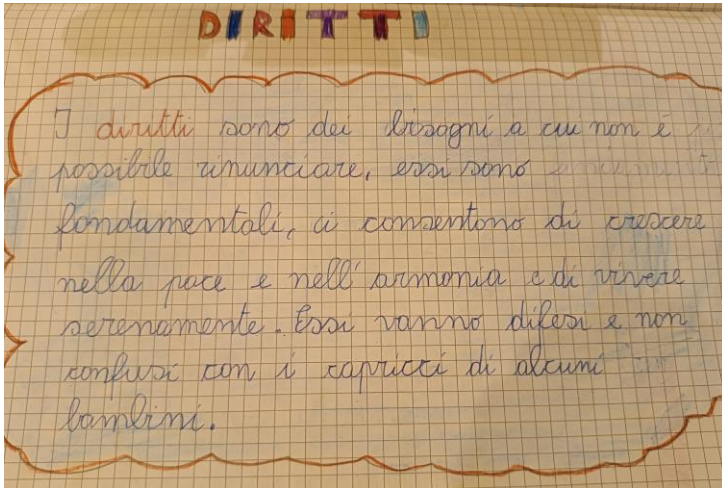 DIRITTI
I diritti sono dei bisogni a cui non è
possibile rinunciare, essi sono
fondamentali, ci consentono di crescere
nella pace e nell'armonia e di vivere
serenamente. Essi vanno difesi e non
confusi con i capricci di alcuni
bambini.